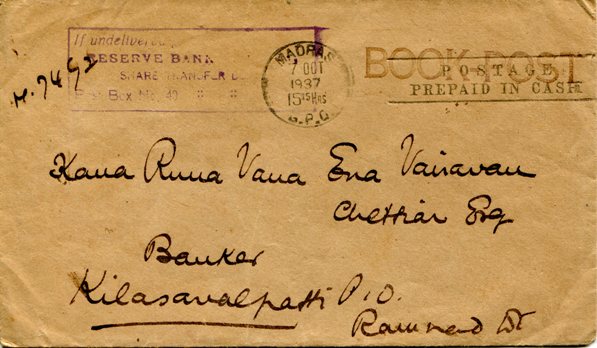 If undelivered
RESERVE BANK
SHARE TRANSFER
Box No. 
MADRAS
7 OCT
1937
15 15 HRS
G.P.O.
BOOK POST
POSTAGE
PREPAID IN CASH
Kana Runa Vana Ena Vairavan
Chettiar Esq
Banker
Kilasavalpatti P.O.
Ramnad Dt